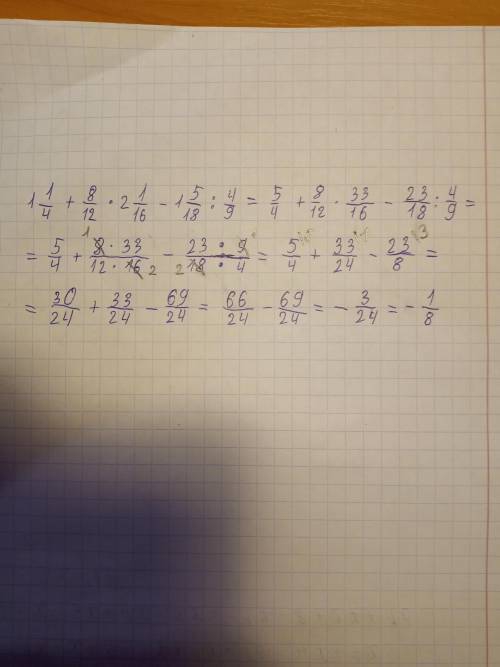 1 1/4 + 8/12 · 2 1/16 - 1 5/18 : 4/9 = 5/4 + 8/12 · 33/16 - 23/18 : 4/9 =
= 5/4 + 8 · 33/12 · 16 - 23 · 9/18 · 4 = 5/4 + 33/24 - 23/8 =
= 30/24 + 33/24 - 69/24 = 66/24 - 69/24 = - 3/24 = - 1/8